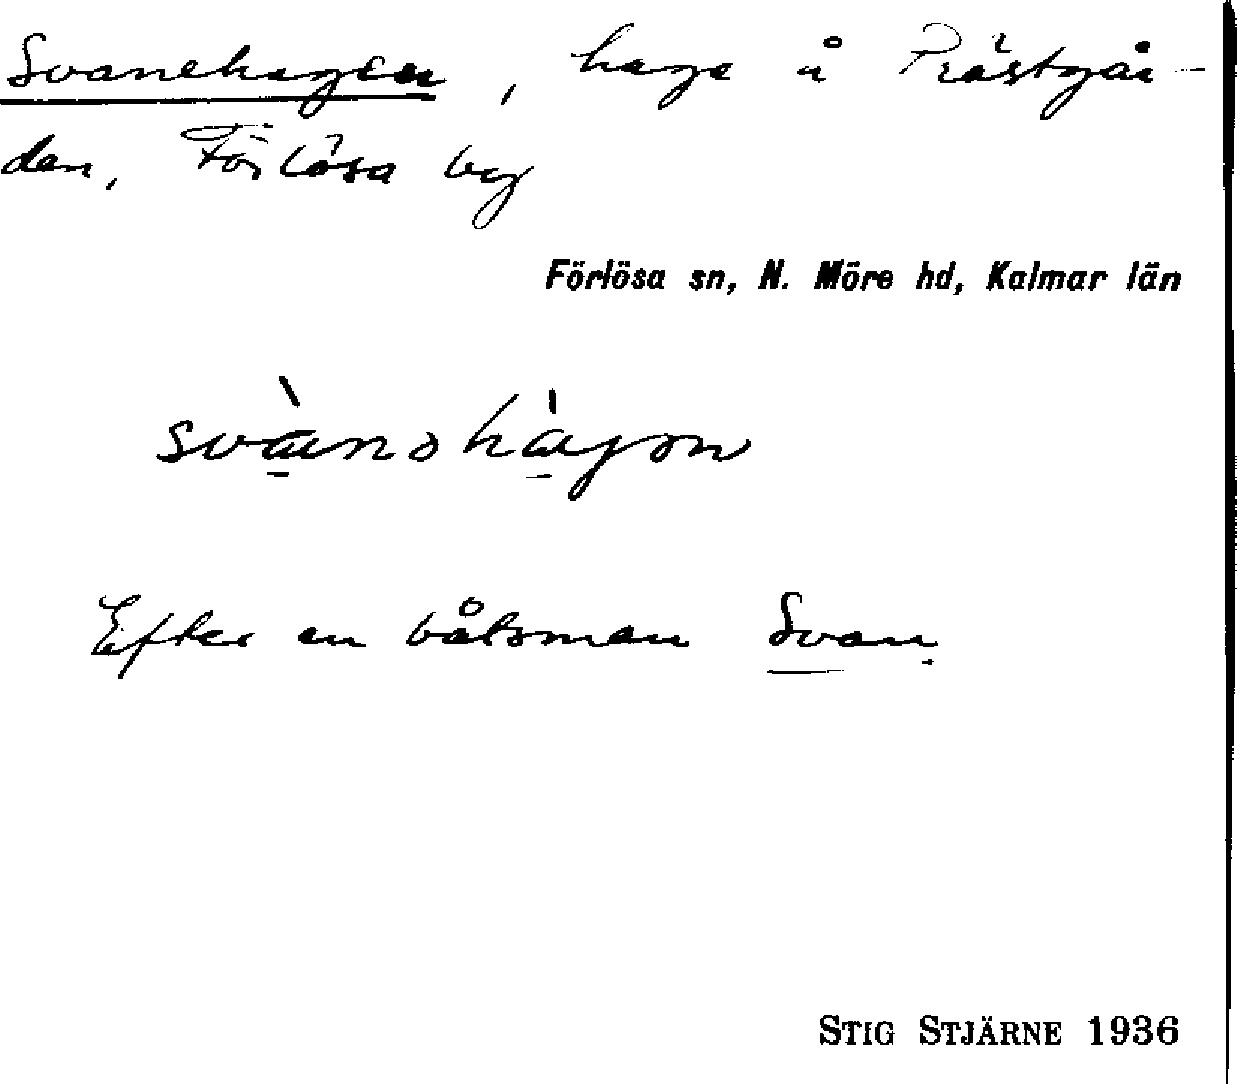 Svanehagen, hage å Prästgår-
den, Förlösa by
Förlösa sn, N. Möre hd, Kalmar län
Efter en båtsman Svan.
STIG STJÄRNE 1936